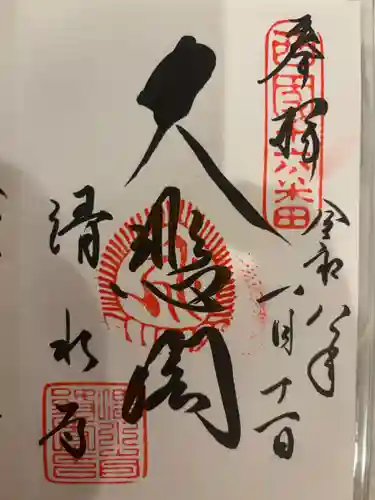 奉拝
令和八年
一月十一日
大悲閣
清水寺